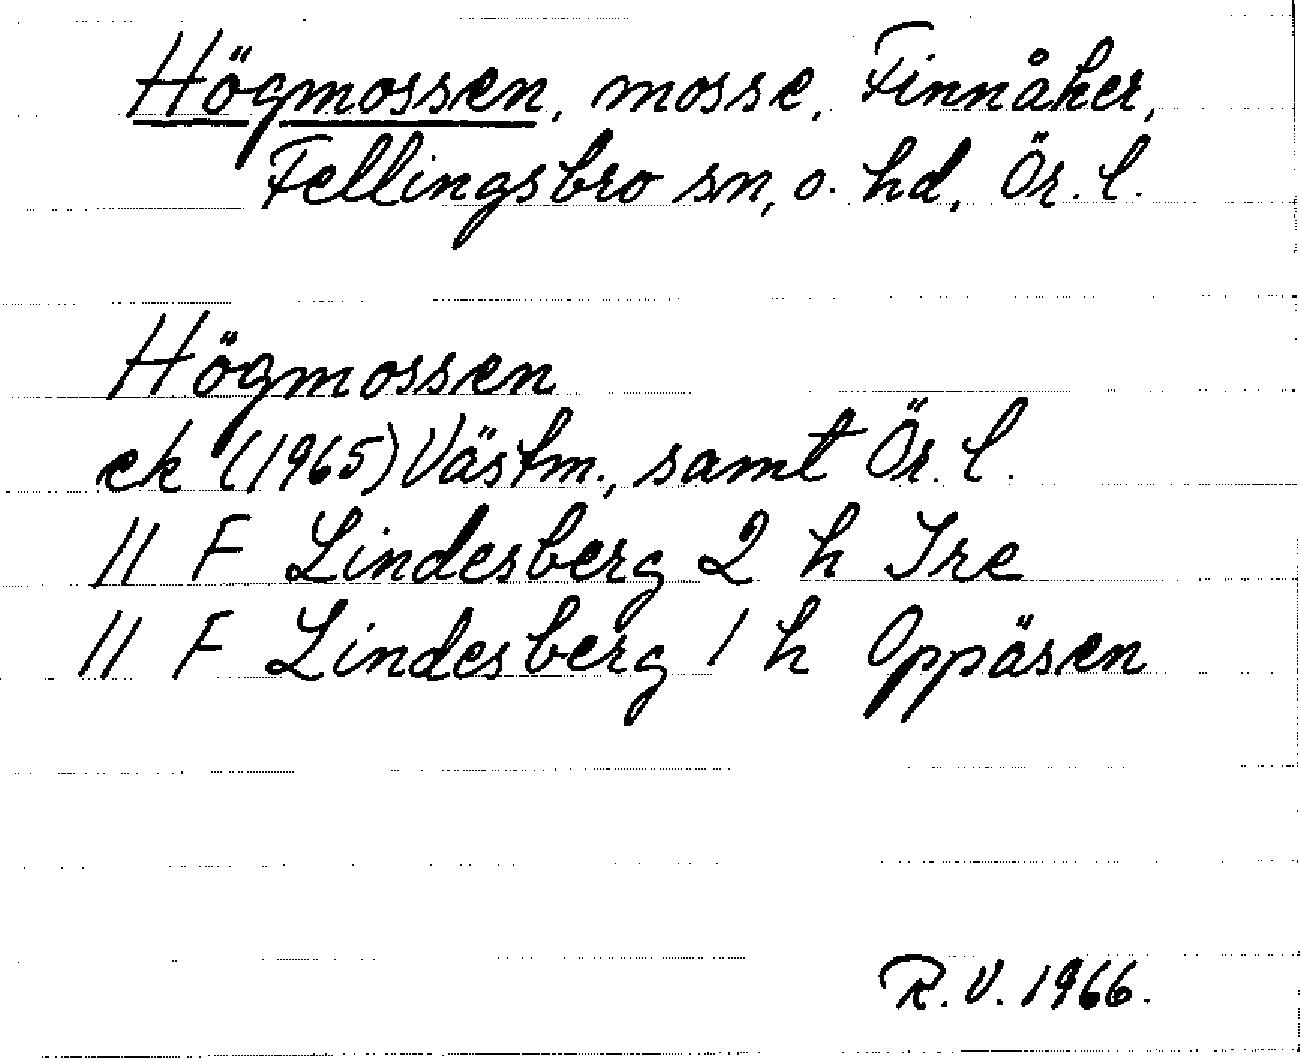 Högmossen, mosse, Finnåker,
Fellingsbro sn, o. hd, Ör. l.
Högmossen
ek (1965) Västm., samt Ör. l.
11 F Lindesberg 2 h Ire
11 F Lindesberg 1 h Oppåsen
R.V. 1966.